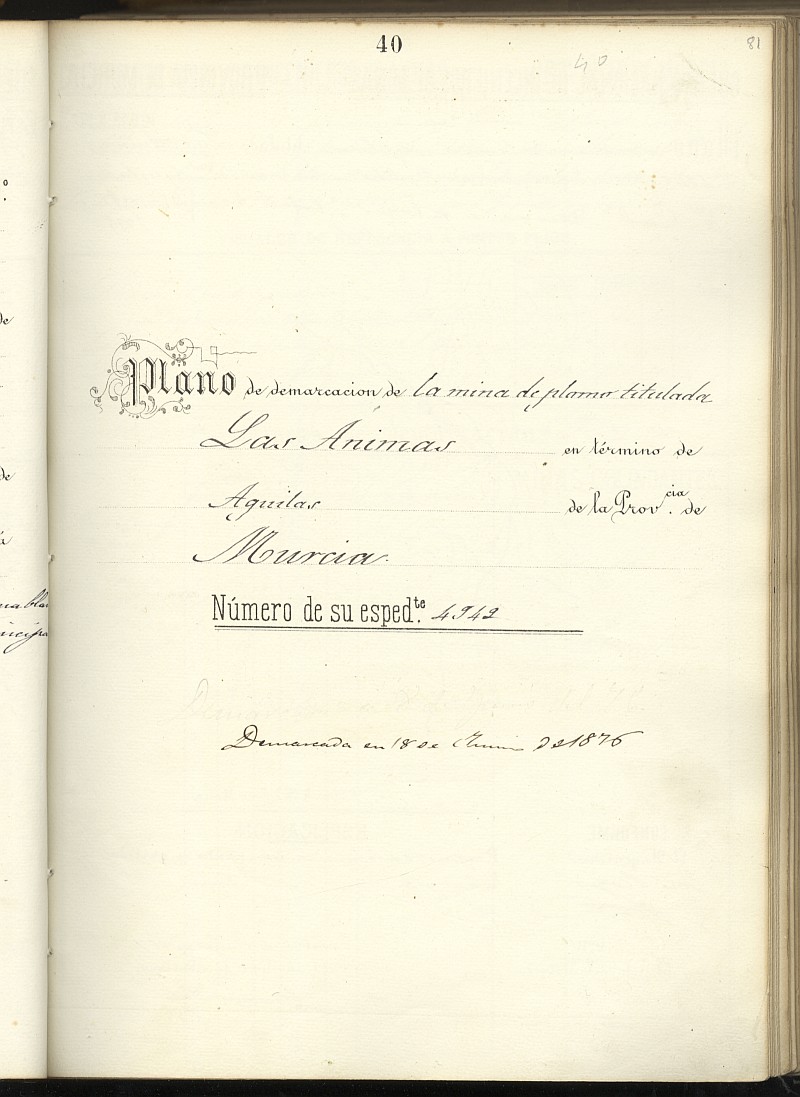 40
40
81
Plano de demarcacion de la mina de plomo titulada
Las Ánimas en término de
Aguilas de la Prov.cia de
Murcia.
Número de su esped.te 4942
Demarcada en 18 de de 1876